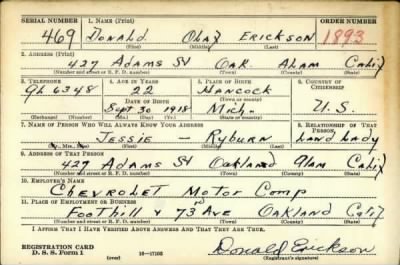 SERIAL NUMBER 1. NAME (Print) ORDER NUMBER
469 Donald Olaf Erickson 1893
(First) (Middle) (Last)
2. ADDRESS (Print)
427 Adams St Oak Alam Calif
(Number and street or R. F. D. number) (Town) (County) (State)
3. TELEPHONE 4. AGE IN YEARS 5. PLACE OF BIRTH 6. COUNTRY OF CITIZENSHIP
GL 6348 22 Hancock
DATE OF BIRTH (Town or county)
Sept 30 1918 Mich. U.S.
(Exchange) (Number) (Mo.) (Day) (Yr.) (State or country)
7. NAME OF PERSON WHO WILL ALWAYS KNOW YOUR ADDRESS 8. RELATIONSHIP OF THAT PERSON
Jessie — Ryburn Land Lady
(Mr., Mrs., Miss) (First) (Middle) (Last)
9. ADDRESS OF THAT PERSON
427 Adams St Oakland Alam Calif
(Number and street or R. F. D. number) (Town) (County) (State)
10. EMPLOYER'S NAME
Chevrolet Motor Comp
11. PLACE OF EMPLOYMENT OR BUSINESS
Foothill & 73rd Ave Oakland Calif
(Number and street or R. F. D. number) (Town) (County) (State)
I AFFIRM THAT I HAVE VERIFIED ABOVE ANSWERS AND THAT THEY ARE TRUE.
REGISTRATION CARD
D. S. S. Form 1 16—17105 Donald Erickson
(over) (Registrant's signature)